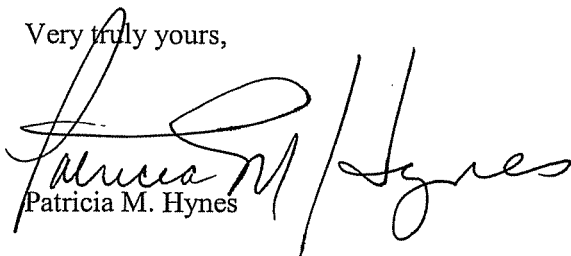 Very truly yours,
Patricia M Hynes
Patricia M. Hynes